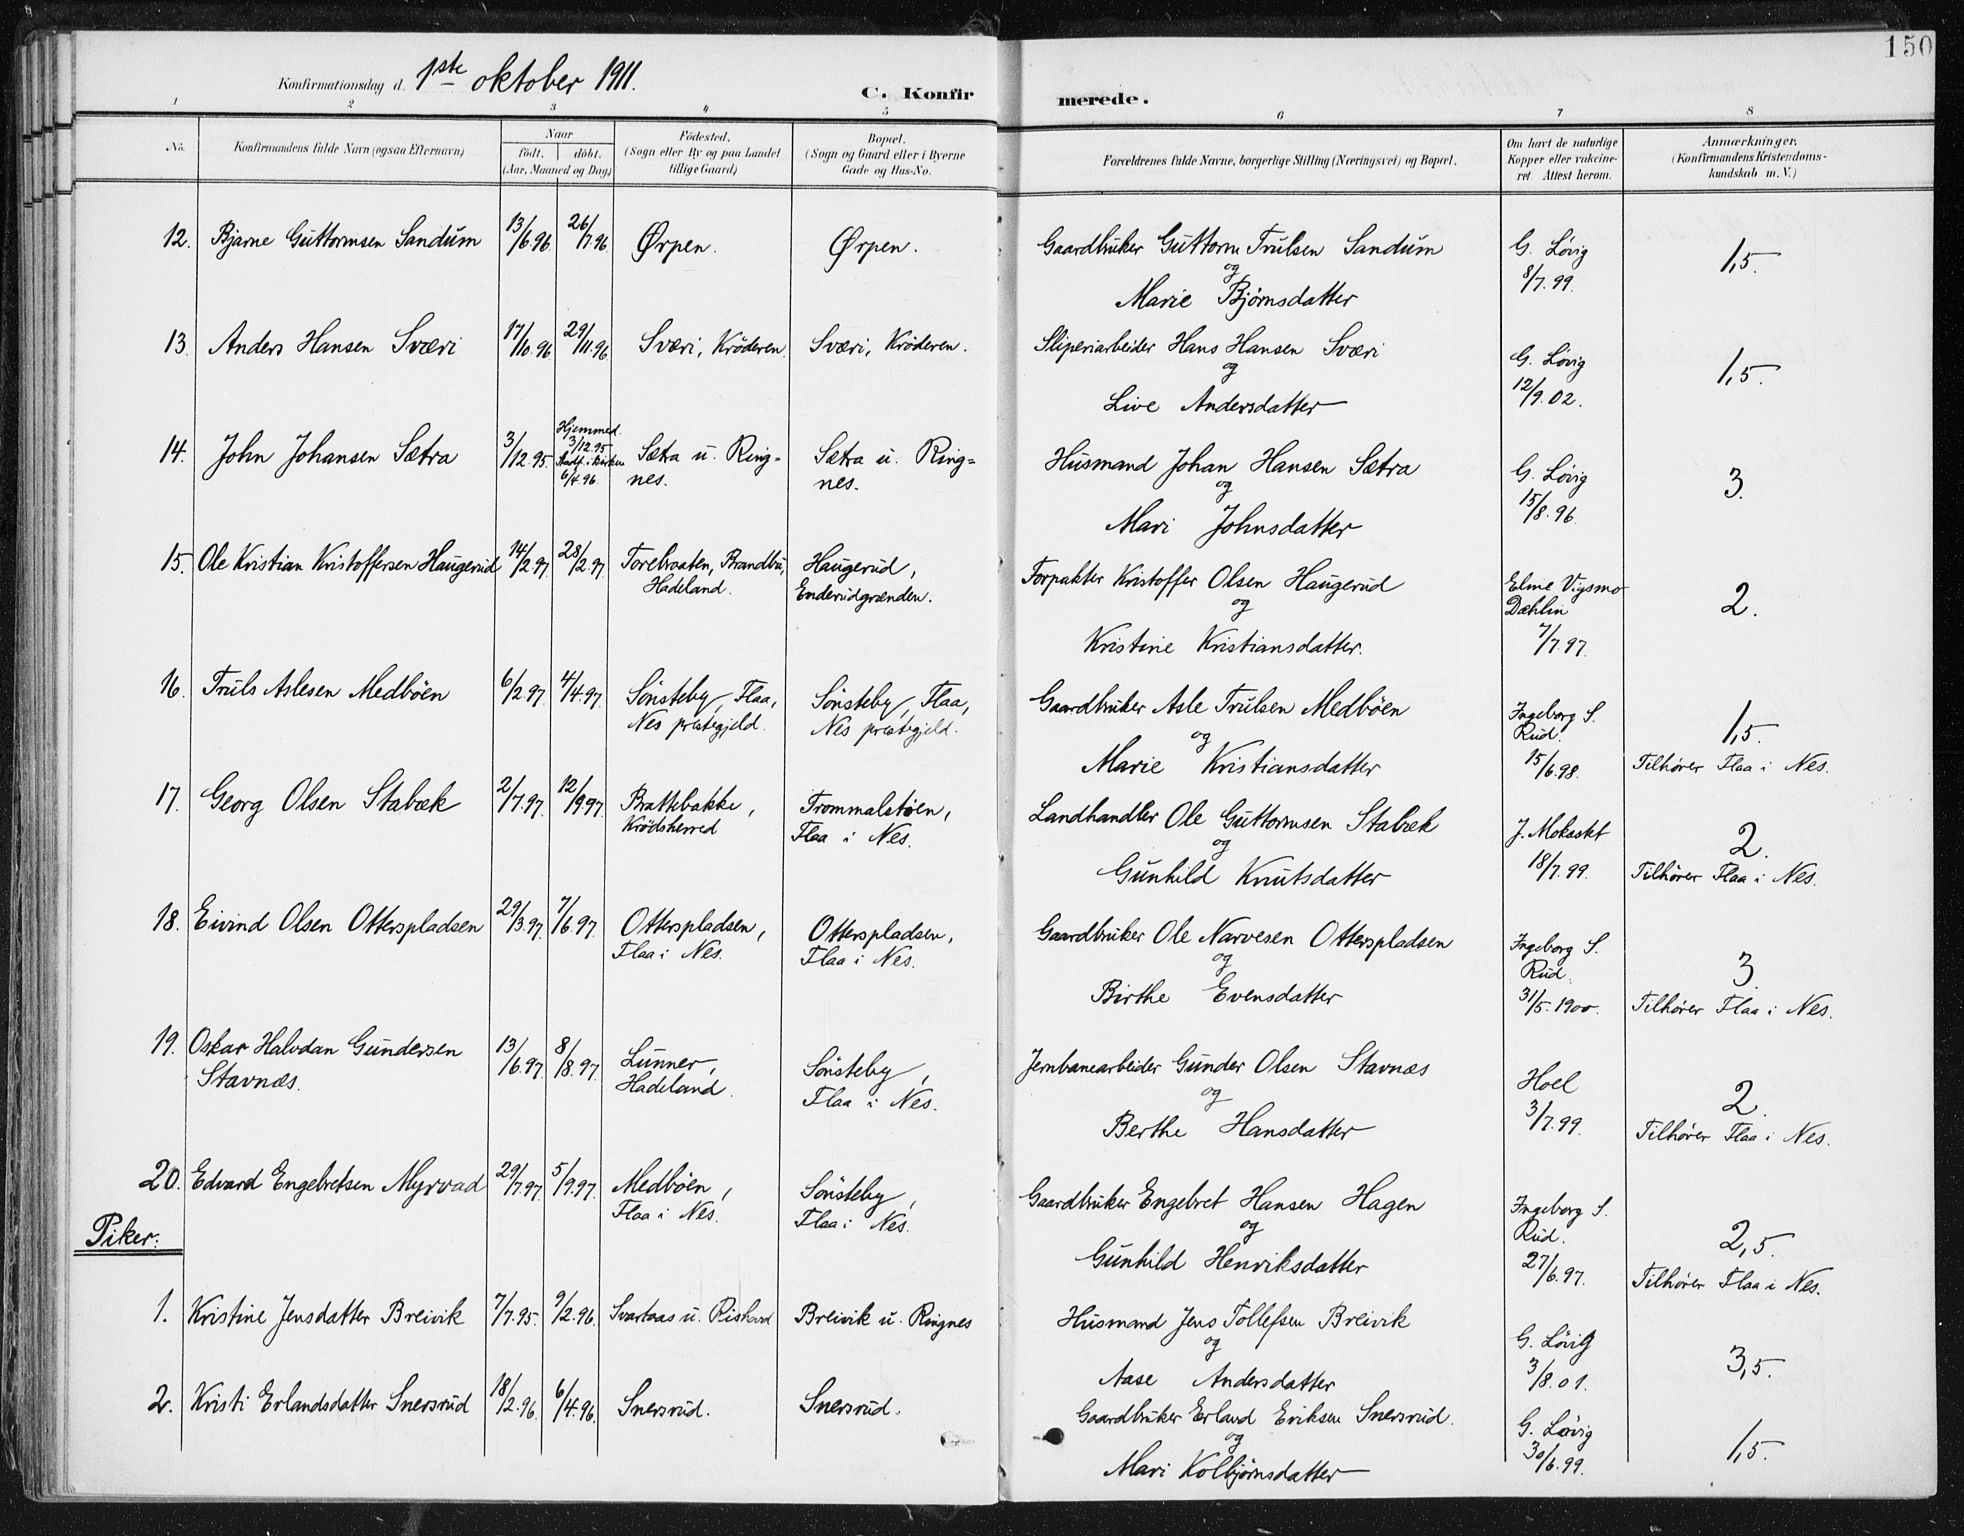 150
Konfirmationsdag d. 1ste oktober 1911.
C. Konfirmerede.
1 2 3 4 5 6 7 8
No. Konfirmandens fulde Navn (ogsaa Efternavn) Naar födt. döbt. (Aar, Maaned og Dag) Födested. (Sogn eller By og paa Landet tillige Gaard) Bopæl. (Sogn og Gaard eller i Byerne Gade og Hus-No. Forældrenes fulde Navne, borgerlige Stilling (Næringsvei) og Bopæl. Om havt de naturlige Kopper eller vakcineret. Attest herom. Anmærkninger. (Konfirmandens Kristendomskundskab m. V.)
12. Bjarne Guttormsen Sandum 13/6.96 26/7.96 Ørpen. Ørpen. Gaardbruker Guttorm Trulsen Sandum G. Løvig 1,5.
og 8/7.99.
Marie Bjørnsdatter
13. Anders Hansen Sværi 17/10.96 29/11.96 Sværi, Krøderen. Sværi, Krøderen. Sliperiarbeider Hans Hansen Sværi G. Løvig 1,5.
og 12/9.02.
Live Andersdatter
14. John Johansen Sætra 3/12.95. Hjemmed. 3/12.95 Stadf. i kirken 6/4.96. Sætra u. Ring= Sætra u. Ring= Husmand Johan Hansen Sætra G. Løvig 3.
nes. nes. og 15/8.96.
Mari Johnsdatter
15. Ole Kristian Kristoffersen Haugerud 14/2.97. 28/2.97. Torebraaten, Brandbu, Haugerud, Forpakter Kristoffer Olsen Haugerud Eline Vigsmo 2.
Hadeland. Enderudgrænden. og Dæhlin
Kristine Kristiansdatter. 7/7.97.
16. Truls Aslesen Medbøen 6/2.97. 4/4.97. Sønsteby, Flaa, Sønsteby, Flaa, Gaardbruker Asle Trulsen Medbøen Ingeborg S. 1,5.
Nes prestegjeld. Nes prestegjeld. og Rud.
Marie Kristiansdatter 15/6.98. Tilhører Flaa i Nes.
17. Georg Olsen Stabæk 2/7.97. 12/9.97. Brattebakke, Trommalstøen, Landhandler Ole Guttormsen Stabæk J. Mokastet 2.
Krødsherred Flaa i Nes. og
Gunhild Knutsdatter 18/7.99. Tilhører Flaa i Nes.
18. Eivind Olsen Otterspladsen 29/3.97. 7/6.97. Otterspladsen, Otterspladsen, Gaardbruker Ole Narvesen Otterspladsen Ingeborg S. 3.
Flaa i Nes. Flaa i Nes. og Rud.
Birthe Evensdatter 31/5.1900. Tilhører Flaa i Nes.
19. Oskar Halvdan Gundersen 13/6.97. 8/8.97. Lunner, Sønsteby, Jernbanearbeider Gunder Olsen Stavnæs Hoel 2.
Stavnæs. Hadeland. Flaa i Nes. og 3/7.99.
Berthe Hansdatter Tilhører Flaa i Nes.
20. Edvard Engebretsen Myrvad 29/7.97. 5/9.97. Medbøen, Sønsteby, Gaardbruker Engebret Hansen Hagen Ingeborg S. 2,5.
Flaa i Nes. Flaa i Nes. og Rud.
Gunhild Henriksdatter 27/6.97. Tilhører Flaa i Nes.
Piker:
1. Kristine Jensdatter Breivik 7/7.95. 9/2.96. Svartaas u. Breivik u. Ringnes Husmand Jens Tollefsen Breivik G. Løvig 3,5.
og 3/8.01.
Aase Andersdatter
2. Kristi Erlandsdatter Snersrud 18/2.96. 6/4.96. Snersrud. Snersrud. Gaardbruker Erland Eriksen Snersrud. G. Løvig 1,5.
og 30/6.99.
Mari Kolbjørnsdatter